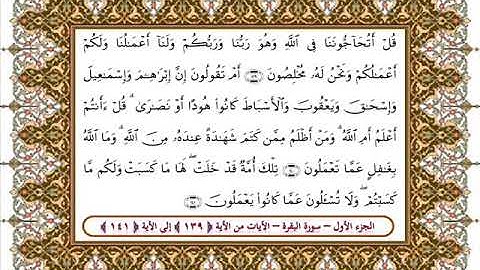 قُلْ أَتُحَآجُّونَنَا فِى ٱللَّهِ وَهُوَ رَبُّنَا وَرَبُّكُمْ وَلَنَآ أَعْمَـٰلُنَا وَلَكُمْ
أَعْمَـٰلُكُمْ وَنَحْنُ لَهُۥ مُخْلِصُونَ ﴿١٣٩﴾ أَمْ تَقُولُونَ إِنَّ إِبْرَٰهِـۧمَ وَإِسْمَـٰعِيلَ
وَإِسْحَـٰقَ وَيَعْقُوبَ وَٱلْأَسْبَاطَ كَانُوا۟ هُودًا أَوْ نَصَـٰرَىٰ ۗ قُلْ ءَأَنتُمْ
أَعْلَمُ أَمِ ٱللَّهُ ۗ وَمَنْ أَظْلَمُ مِمَّن كَتَمَ شَهَـٰدَةً عِندَهُۥ مِنَ ٱللَّهِ ۗ وَمَا ٱللَّهُ
بِغَـٰفِلٍ عَمَّا تَعْمَلُونَ ﴿١٤٠﴾ تِلْكَ أُمَّةٌ قَدْ خَلَتْ ۖ لَهَا مَا كَسَبَتْ وَلَكُم مَّا
كَسَبْتُمْ ۖ وَلَا تُسْـَٔلُونَ عَمَّا كَانُوا۟ يَعْمَلُونَ ﴿١٤١﴾
الجزء الأول – سورة البقرة – الآيات من الآية ﴿ ١٣٩ ﴾ إلى الآية ﴿ ١٤١ ﴾